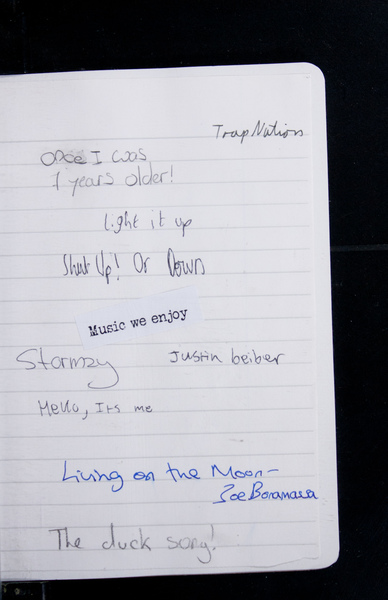 Trap Nation
Once I was
7 years older!
Light it up
Shut Up! Or Down
Music we enjoy
Stormzy
Justin beiber
Hello, Its me
Living on the Moon-
Joe Bonamassa
The duck song!